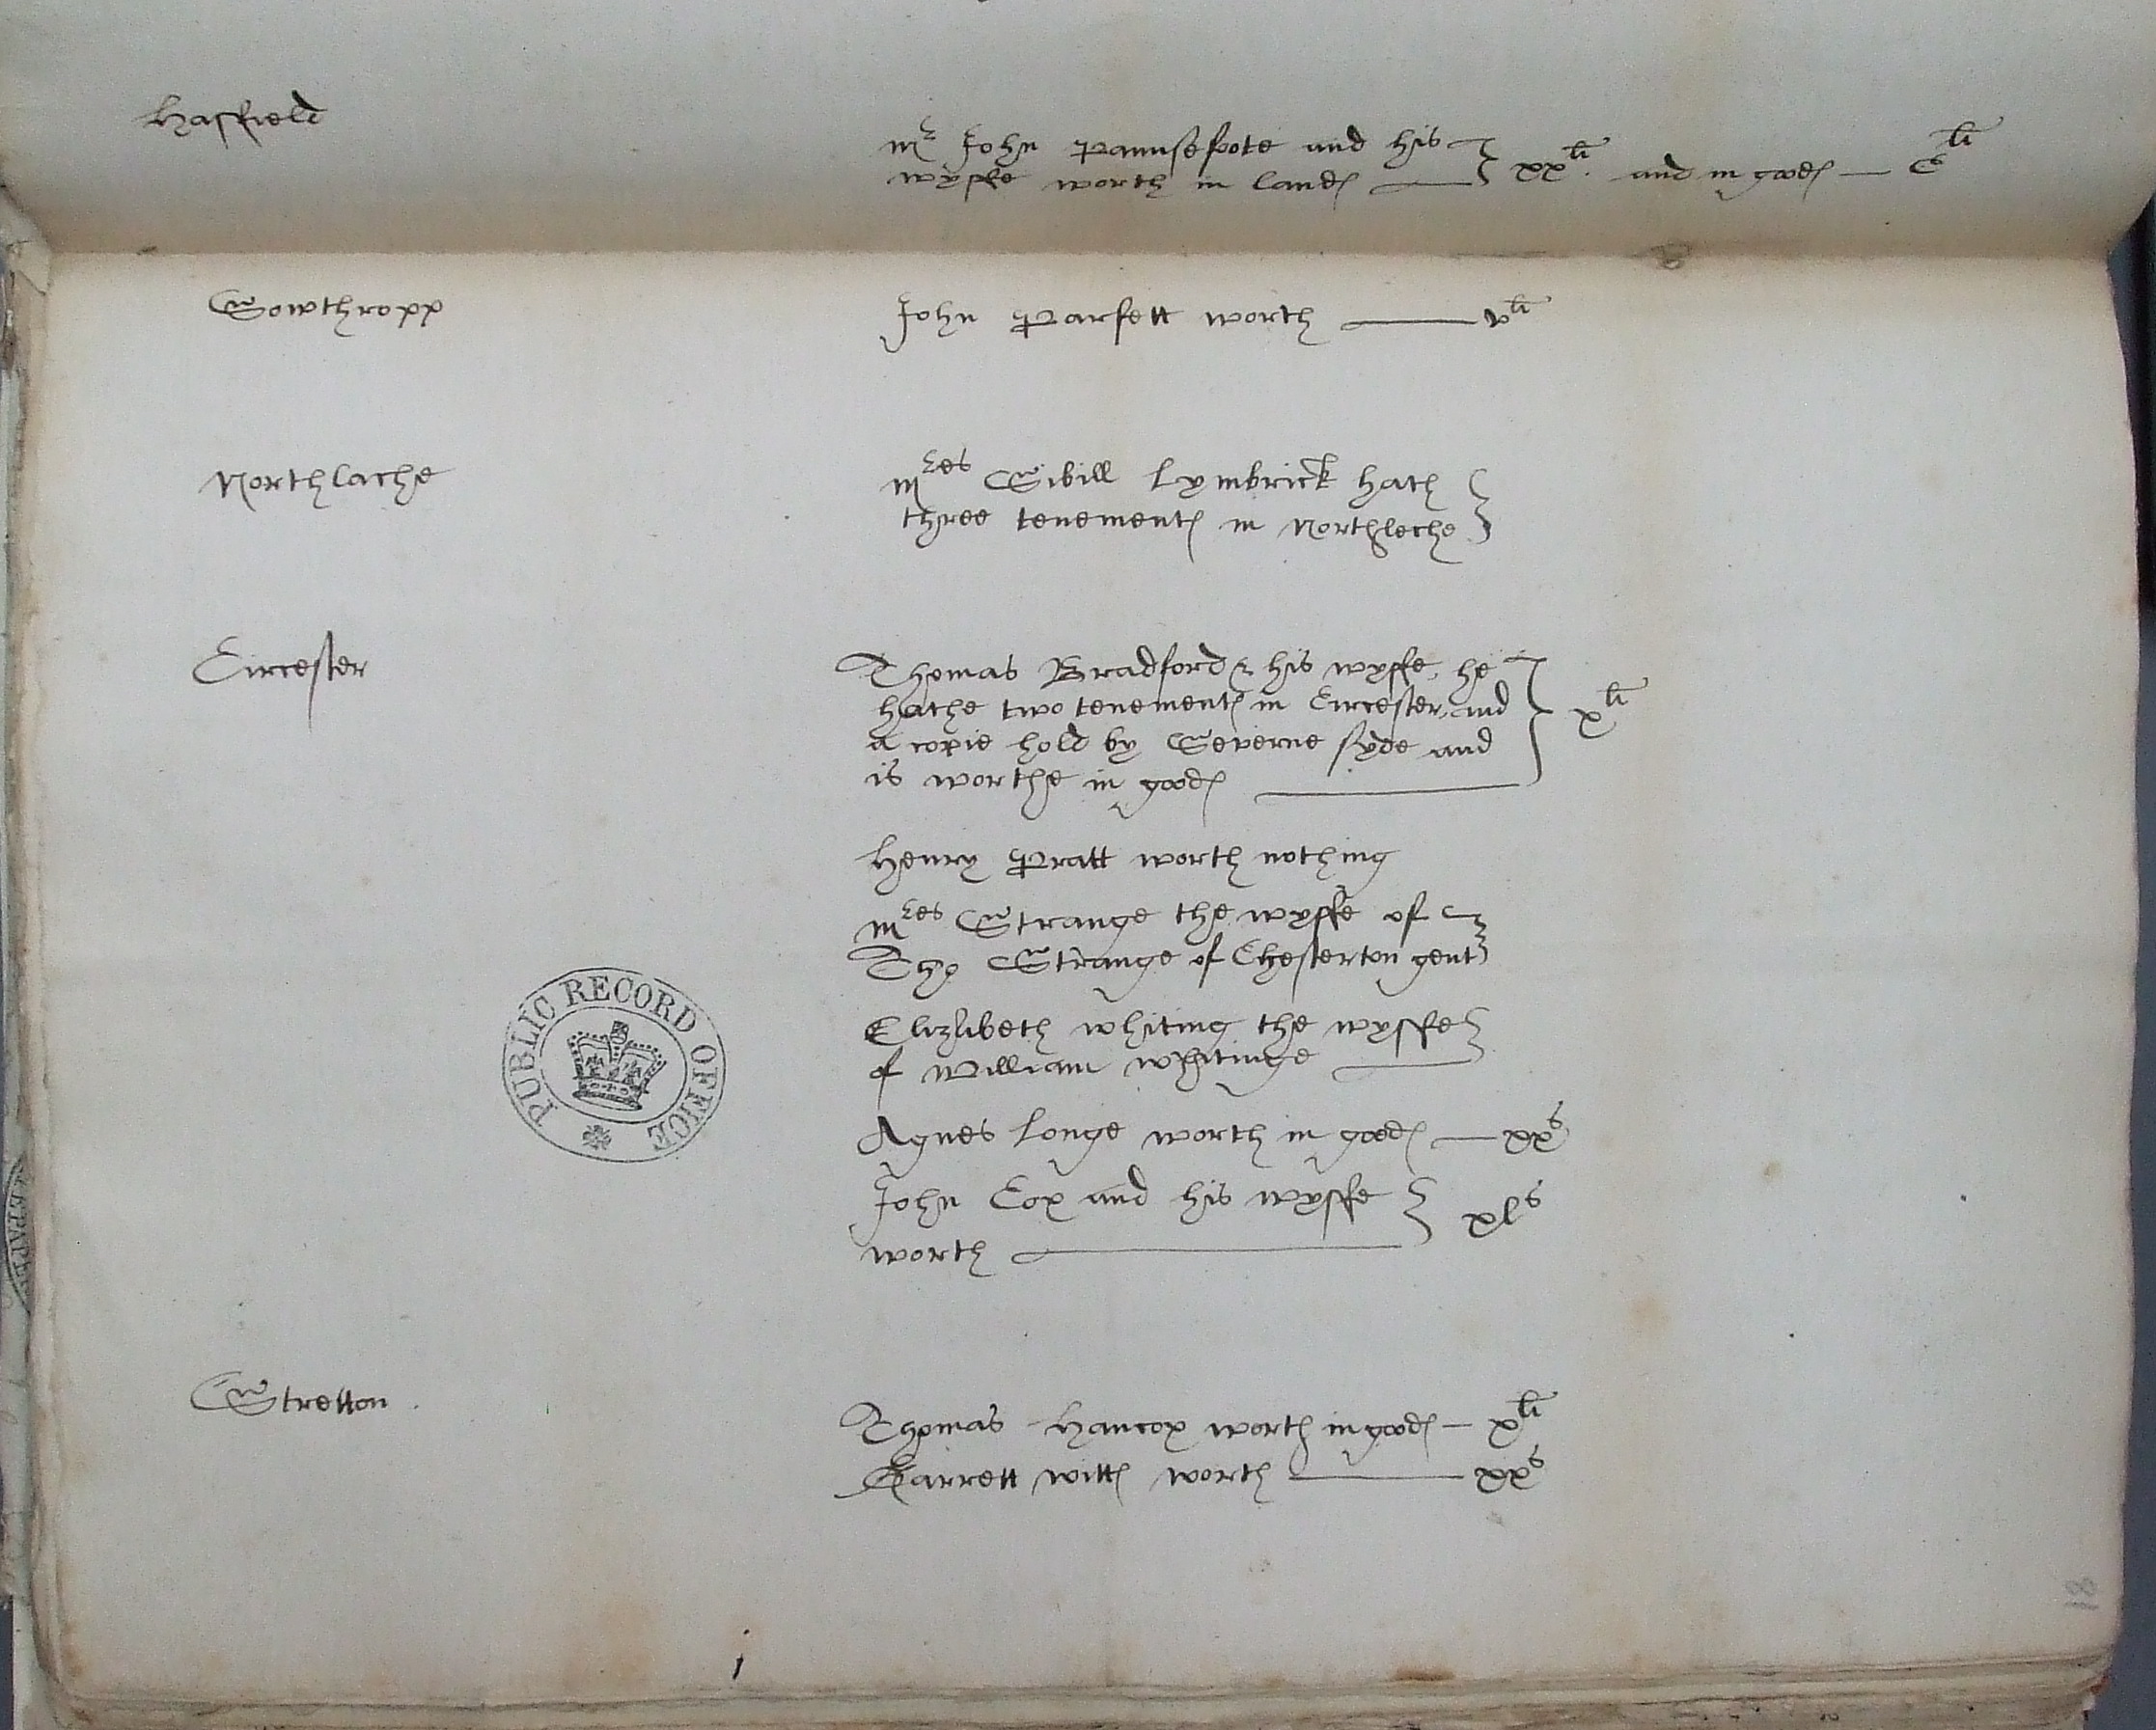 Hasfield
mr John Paunsefote and his
wyffe worth in landes xxli. and in goodes Cli
Sowthropp
John Parfett worth vli
Northlache
mres Sibill Lymbrick hath
three tenementes in Northleche
Circester
Thomas Bradford & his wyffe, he
hathe two tenementes in Circester, and
a copie hold by Severne syde and
is worthe in goodes
xli
Henry Pratt worth nothing
mres Strange the wyffe of
Tho Strange of Chesterton gent
Elizabeth Whiting the wyffe
of William Whitinge
Agnes Longe worth in goodes xxs
John Cox and his wyffe
worth
xls
Stretton.
Thomas Hancox worth in goodes xli
Garrett Wittes worth xxs
PUBLIC RECORD OFFICE
81